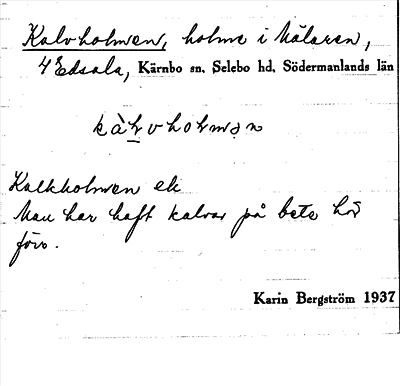 Kalvholmen, holme i Mälaren,
4 Edsala, Kärnbo sn. Selebo hd. Södermanlands län
kàlvholmən
Kalkholmen ek
Man har haft kalvar på bete här
förr.
Karin Bergström 1937